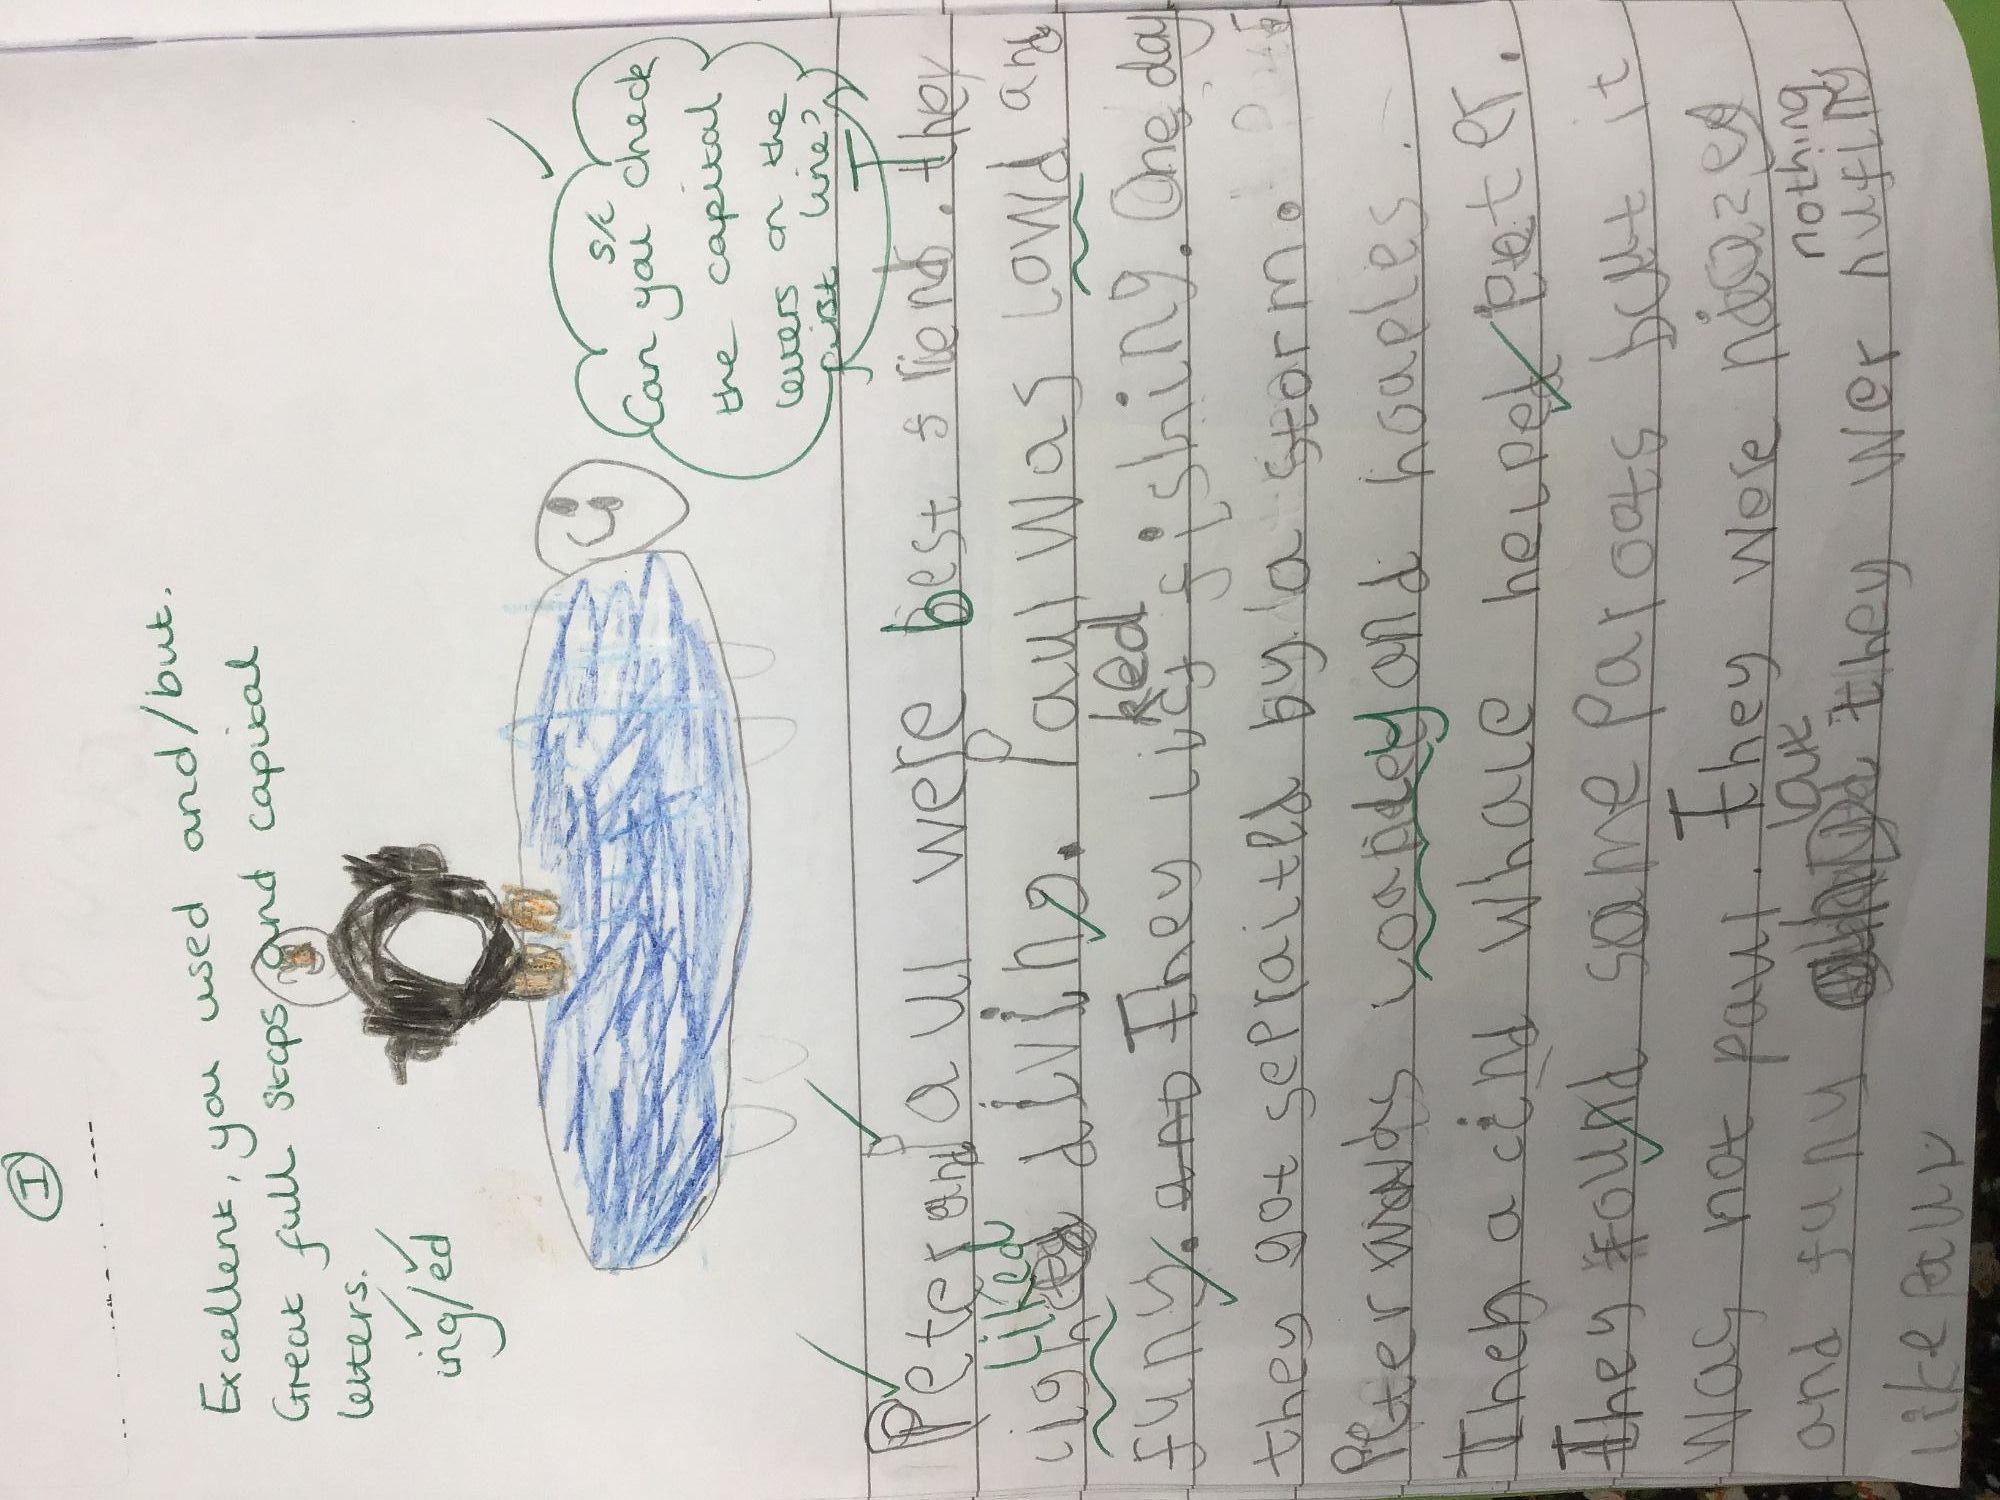 I
Excellent, you used and/but.
Great full stops and capital
letters.
ing/ed
S/C
Can you check
the capital
letters on the
first line?
Peter and Paul were best friend. they
Liked
diving. Paul was lowd and
ked
funy. and They lict fishing. One day
they got sepraitld by a storm.
Peter was loanley and hoaples.
Then a cind whale helped Peter.
They found some parots but it
was not paul. They wore niccey
but nothing
and funy they wer
like Paul